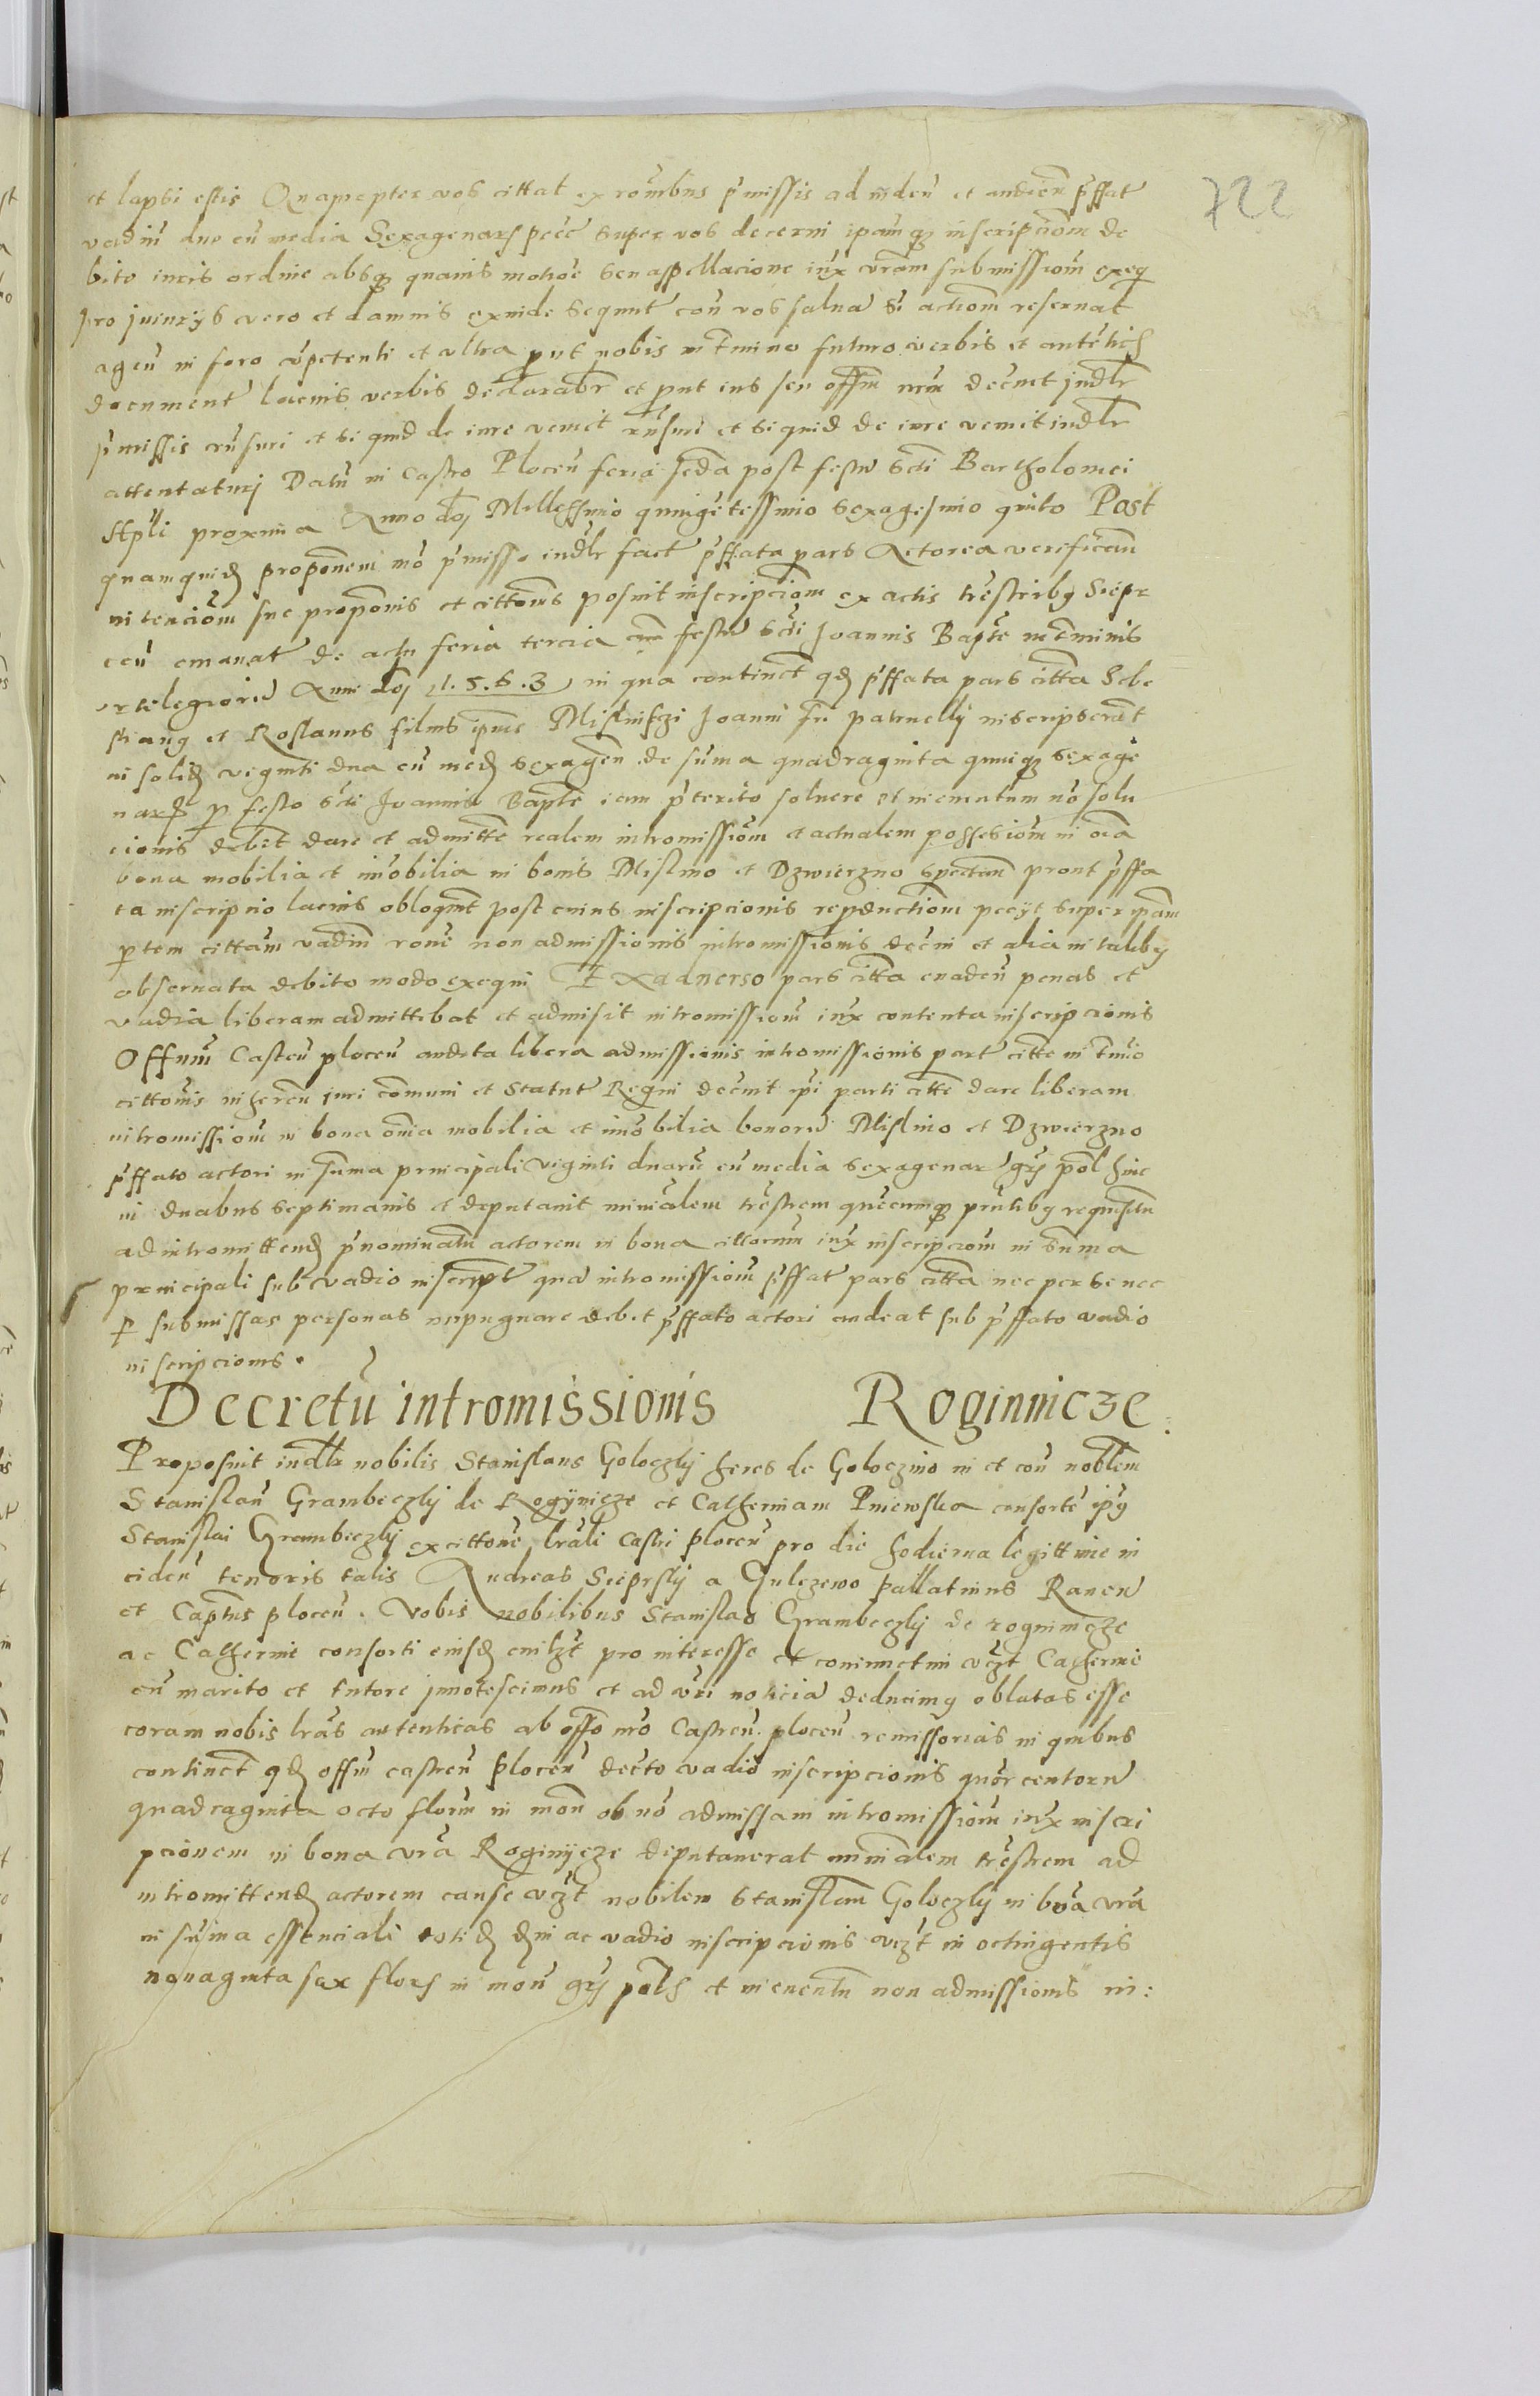 722
et lapsi estis Quapropter vos cittat ex rõnibus p̃missis ad vidẽn et audien p̃ffat
vadiũ due cũ media Sexagenars pecc super vos decerni ipamq inscripcõm de
bito iuris ordine absq quavis mocõe seu appellacione iux vrãm submissiom exeq
pro iniuriis vero et damnis exinde sequut con vos salva si actiom reservat
agen in foro cõpetenti et ultra put nobis in tmino futuro verbis et autẽtich
document lacius verbis declarabr et put ius seu offm nrm decnet judlr
p̃missis rñsuri et si quid de iure venit rñsuri et si quid de iure venit indlr
attentaturi Datũ in Castro Plocen feria scda post festũ Scti Bartholomei
Apli proxima Anno doj Millessimo quingẽtessimo sexagesimo quito Post
quamquid proponem mõ p̃misso indlr fact p̃ffata pars Actorea verifican
intenciom sue proponis et cittonis posuit inscripciom ex actis trẽstribg Sierp
cen emanat de actu feria tercia festũ Scti Joannis Bapte in tminis
Anni doj 1.5.6.3 in qua continet qd p̃ffata pars citta Seba
stiang et Roslanus filius Joanni patruelli inscripserũt
in solid viginti dua cũ med sexagen de suma quadraginta quinq sexage
nars p festo Scti Joannis Bapte iam p̃terito solvere et in eventum nõ solu
cionis debet dare et admitte realem intromissiom et actualem possessiom in oia
bona mobilia et imobilia in bonis Mislino et Dzwierzno spectan prout p̃ffa
ta inscripcio lacius obloquit post cuius inscripcionis reproductiom peciit super ipam
ptem cittam vadiũ rone non admissionis intromissionis decni et alia in talibg
observata debito modo exequi Ex adverso pars citta evaden penas et
vadia liberam admittebat et admisit intromissiom iux contenta inscripcionis
Offium Castren plocen audita libera admissionis intromissionis part citte in tmio
cittonis inheren iuri cõmuni et Statut Regni decnit ipi parti citte dare liberam
intromissiom in bona omia mobilia et imobilia bonorũ Mislino et Dzwierzno
p̃ffato actori in suma principali viginti duarũ cũ media sexagenar grj pol hinc
in duabus septimanis et deputavit minialem trẽstrem quecumq prntibg requisitu
ad intromittend p̃nominatu actorem in bona cittorum iux inscripciom in suma
principali sub vadio inscript qua intromissiom p̃ffat pars citta nec per se nec
p submissas personas impugnare debet p̃ffato actori audeat sub p̃ffato vadio
inscripcionis.
Decretũ intromissionis Roginnicze
Proposuit indlr nobilis Stanislaus Goloczkj heres de Goloczino in et con noblem
Stanislaũ Grambeczkj de Rogijnicze et Catherinam Pniewska consortẽ ipg
Stanislai Grambeczkj ex cittone lrali Castri plocen pro die hodierna legittime in
ciden tenoris talis Andreas Sieprskj a Gulczewo pallatinus Raven
et Captus plocen. Vobis nobilibus Stanislao Grambeczkj de roginnicze
ac Catherine consorti eiusd cuilzt pro interesse et coniunctim vczt Catherine
cũ marito et tutore innotescimus et ad vri noticiã deducimg oblatas esse
coram nobis lras autenticas ab offo nro Castren plocen remissorias in quibus
continet qd offm castren plocen decto vadio inscripcionis quor centorũ
quadraginta octo florm in mon ob nõ admissam intromissiom iux inscri
pcionem in bona vra Roginijcze deputaverat minialem trẽstrem ad
intromittend actorem cause vczt nobilem Stanislam Goloczkj in bõa vra
in suma essenciali totid dni ac vadio inscripcionis vczt in octingentis
nonaginta sex flors in mon grj pols et in eventu non admissionis in: